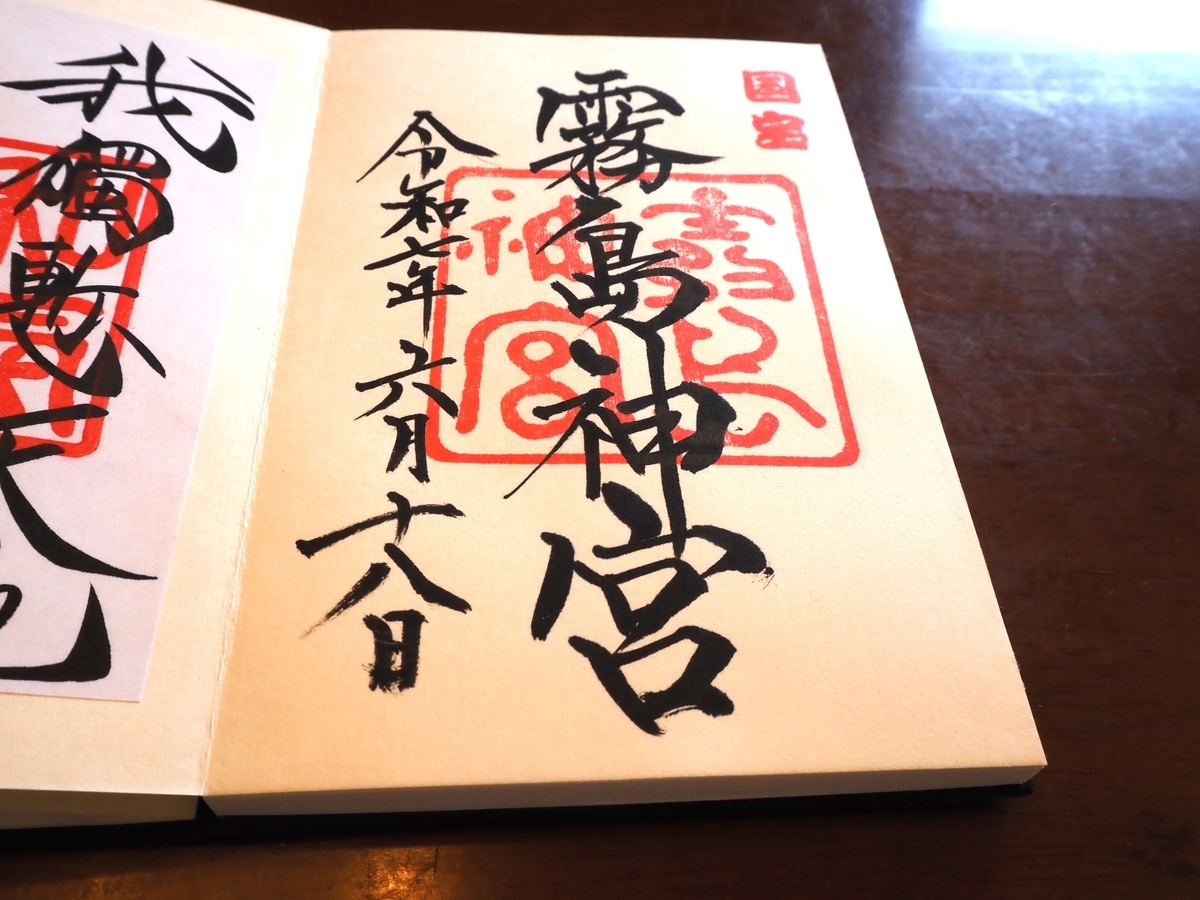 国宝
霧島神宮
霧島神宮
令和七年六月十八日
我獨慙天